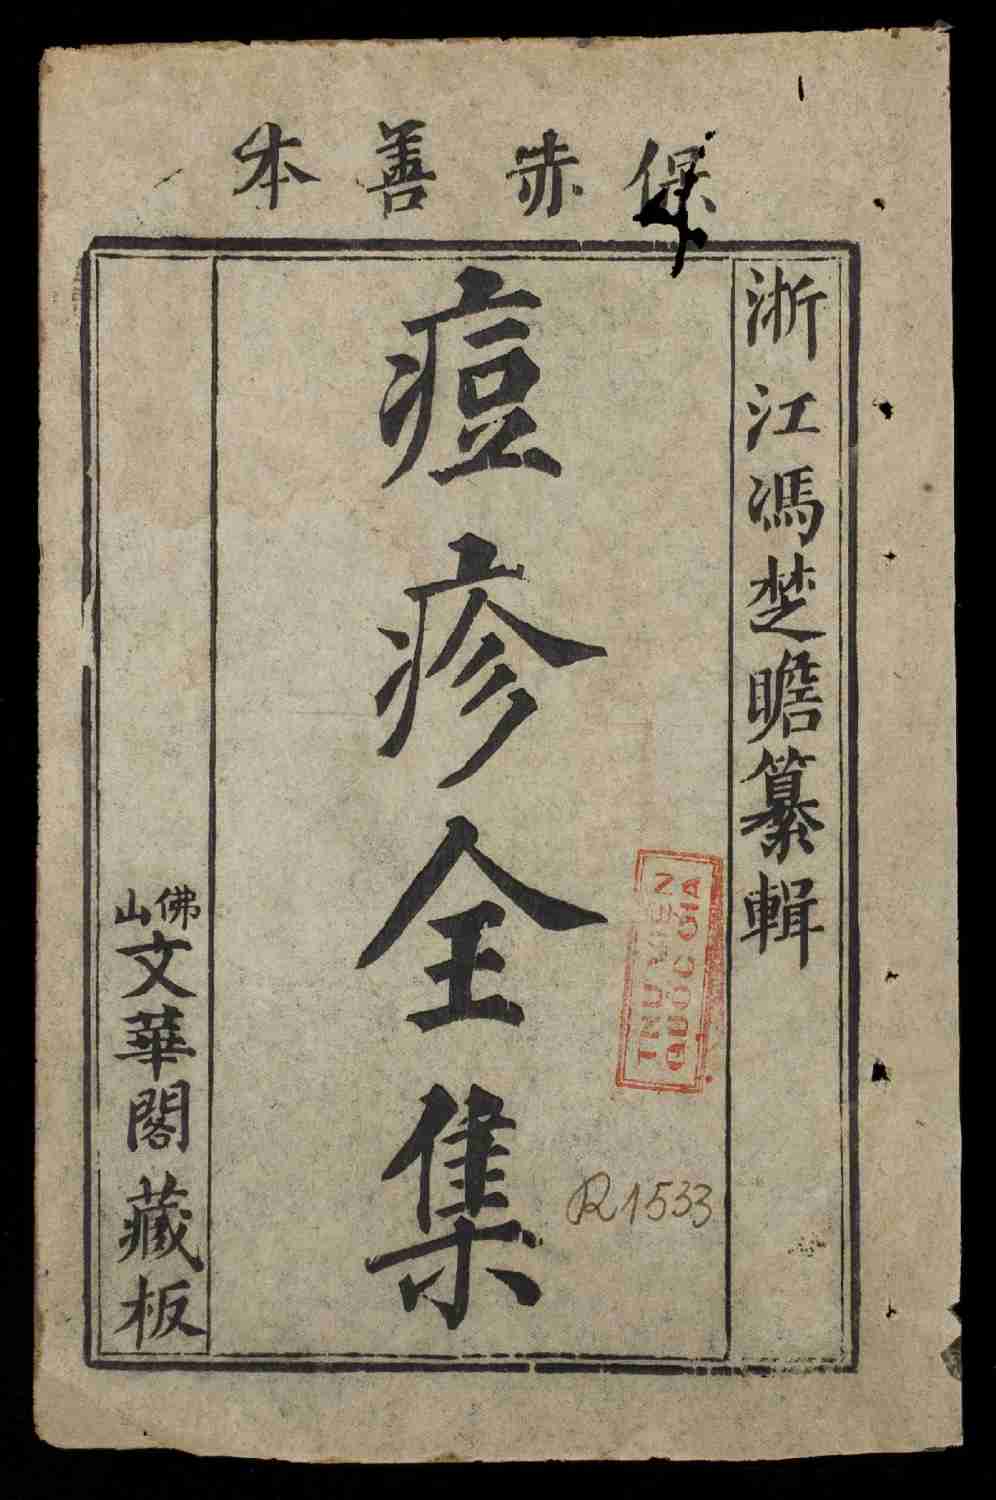 保赤善本
浙江馮楚瞻纂輯
痘疹全集
佛山
文華閣藏板
THU VIEN
QUOC GIA
R1533